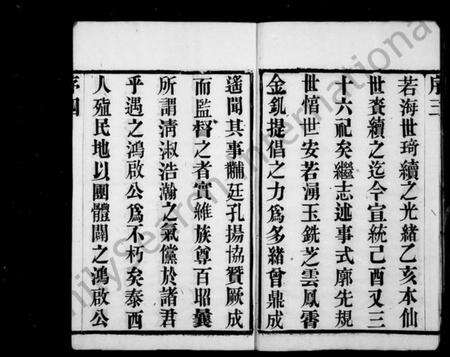 序三
若海世琦續之光緒乙亥本仙
世賚續之迄今宣統己酉又三
十六祀矣繼志述事式廓先規
世愔世安若湧玉銑芝雲鳳霄
金釓提倡之力爲多緒曾鼎成
遙聞其事黼廷孔揚協贊厥成
而監督之者實維族尊百昭襲
所謂淸淑浩瀚之氣儻於諸君
乎遇之鴻啟公爲不朽矣泰西
人殖民地以團體闢之鴻啟公
序四
FamilySearch International